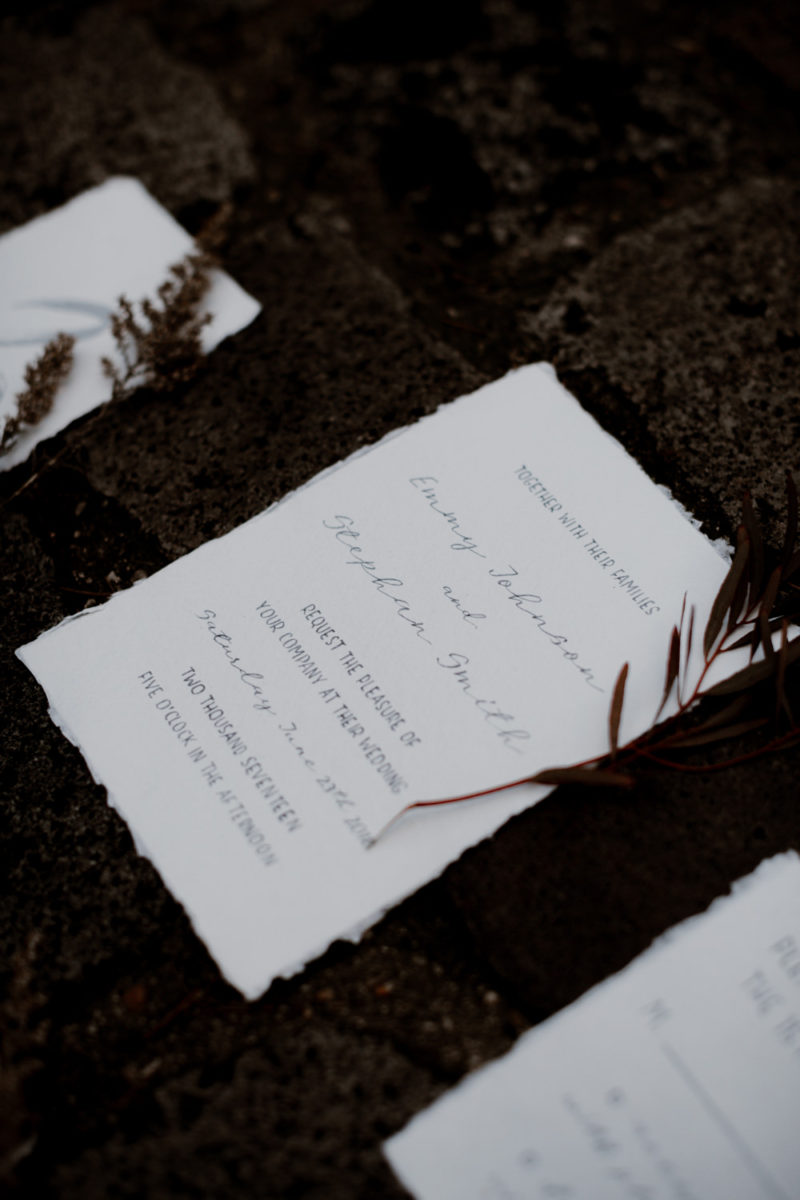 TOGETHER WITH THEIR FAMILIES
Emmy Johnson
and
Stephan Smith
REQUEST THE PLEASURE OF
YOUR COMPANY AT THEIR WEDDING
Saturday June 23th 2018
TWO THOUSAND SEVENTEEN
FIVE O'CLOCK IN THE AFTERNOON
M